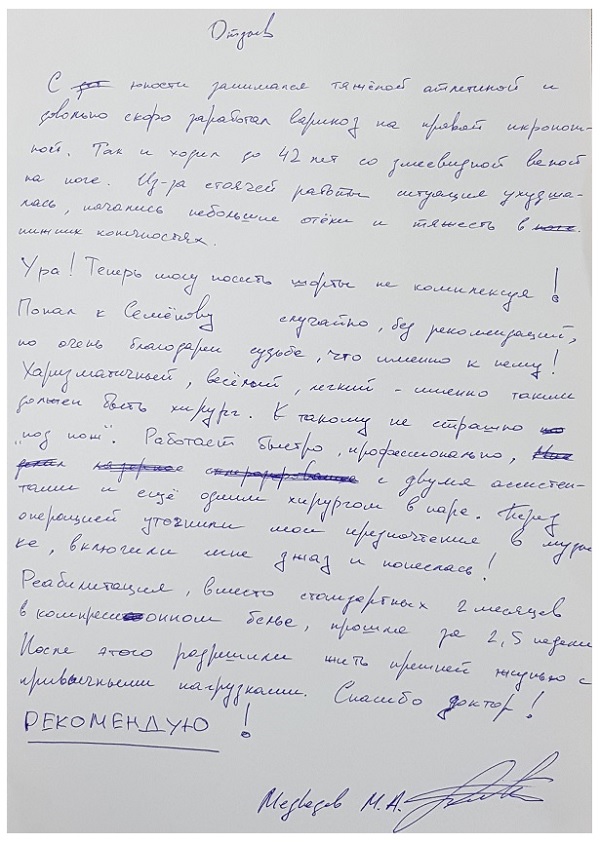 Отзыв
С юности занимался тяжёлой атлетикой и
довольно скоро заработал варикоз на правой икронож-
ной. Так и ходил до 42 лет со змеевидной веной
на ноге. Из-за стоячей работы ситуация ухудша-
лась, начались небольшие отёки и тяжесть в
нижних конечностях.
Ура! Теперь могу носить шорты не комплексуя!
Попал к Семёнову случайно, без рекомендаций,
но очень благодарен судьбе, что именно к нему!
Харизматичный, весёлый, легкий - именно таким
должен быть хирург. К такому не страшно
"под нож". Работает быстро, профессионально,
с двумя ассистен-
тами и ещё одним хирургом в паре. Перед
операцией уточнили мои предпочтения в музы-
ке, включили мне джаз и понеслась!
Реабилитация, вместо стандартных 2 месяцев
в компрессионном белье, прошла за 2,5 недели
После этого разрешили жить прежней жизнью с
привычными нагрузками. Спасибо доктор!
РЕКОМЕНДУЮ!
Медведев М.А.